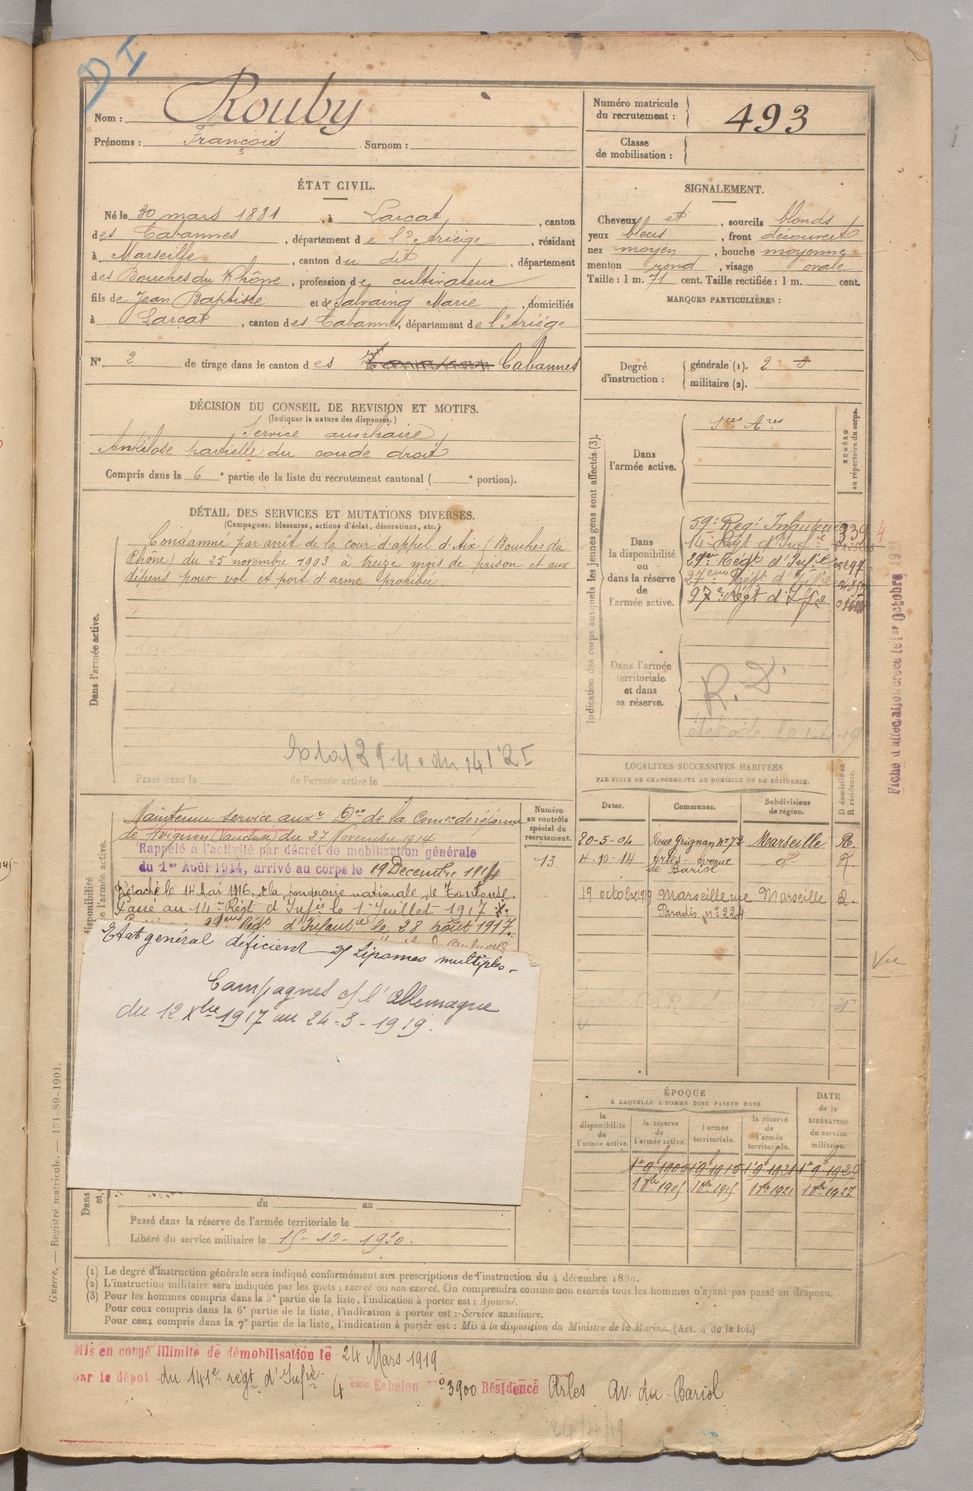 DI
Nom : Rouby
Prénoms : François Surnom :
Numéro matricule du recrutement : 493
Classe de mobilisation :
ÉTAT CIVIL.
Né le 30 mars 1881, à Larcat, canton
des Cabannes, département de l'Ariège, résidant
à Marseille, canton du dit, département
des Bouches du Rhône, profession de cultivateur
fils de Jean Baptiste et de Salvaing Marie, domiciliés
à Larcat, canton des Cabannes, département de l'Ariège
N° 2 de tirage dans le canton des Cabannes
SIGNALEMENT.
Cheveux et, sourcils blonds
yeux bleus, front découvert
nez moyen, bouche moyenne
menton rond, visage ovale
Taille : 1 m. 71 cent. Taille rectifiée : 1 m. cent.
MARQUES PARTICULIÈRES :
Degré d'instruction : générale (1). 2
militaire (2).
DÉCISION DU CONSEIL DE REVISION ET MOTIFS.
(Indiquer la nature des dispenses.)
Service auxiliaire
Ankilose partielle du coude droit
Compris dans la 6e partie de la liste du recrutement cantonal ( e portion).
DÉTAIL DES SERVICES ET MUTATIONS DIVERSES.
(Campagnes, blessures, actions d'éclat, décorations, etc.)
Condamné par arrêt de la cour d'appel d'Aix (Bouches du
Rhône) du 25 novembre 1903 à treize mois de prison et aux
dépens pour vol et port d'arme prohibée
Dans l'armée active.
Passé dans la de l'armée active le
Indication des corps auxquels les jeunes gens sont affectés (3).
NUMÉRO au répertoire du corps.
Dans l'armée active.
Dans la disponibilité ou dans la réserve de l'armée active.
59e Regt Infanterie
14 Regt d'Infie
29e Regt d'Infie
27e Regt d'Infie
97e Regt d'Infie
Dans l'armée territoriale et dans sa réserve.
R. D.
Fiche d'affectation créée le 1er Octobre
LOCALITÉS SUCCESSIVES HABITÉES
PAR SUITE DE CHANGEMENTS DE DOMICILE OU DE RÉSIDENCE.
Dates. Communes. Subdivisions de région. D domicile ou R résidence.
20-5-04 Rue Grignan n° 72 Marseille R.
4-10-14 Arles - Avenue de Bariol do R
19 octobre 1919 Marseille rue Paradis, n° 224 Marseille D.
Vu
Numéro au contrôle spécial du recrutement.
13
Maintenu service auxre Don de la Comon de réforme
de Avignon (Vaucluse) du 27 Novembre 1914
Rappelé à l'activité par décret de mobilisation générale
du 1er Août 1914, arrivé au corps le 19 Décembre 1914
Détaché le 14 Mai 1916 à la poudrerie nationale de Toulouse
Passé au 14e Régt d'Infie le 1er Juillet 1917
d'Infanterie le 28 août 1917.
Etat général déficient 2/ Lipomes multiples
Campagnes c/ l'Allemagne
du 12 Xbre 1917 au 24-3-1919.
du au
Passé dans la réserve de l'armée territoriale le
Libéré du service militaire le 15-12-1930.
ÉPOQUE
À LAQUELLE L'HOMME DOIT PASSER DANS
la disponibilité de l'armée active.
la réserve de l'armée active.
l'armée territoriale.
la réserve de l'armée territoriale.
DATE de la LIBÉRATION du service militaire.
(1) Le degré d'instruction générale sera indiqué conformément aux prescriptions de l'instruction du 4 décembre 1889.
(2) L'instruction militaire sera indiquée par les mots : exercé ou non exercé. On comprendra comme non exercés tous les hommes n'ayant pas passé au drapeau.
(3) Pour les hommes compris dans la 5e partie de la liste, l'indication à porter est : Ajourné.
Pour ceux compris dans la 6e partie de la liste, l'indication à porter est : Service auxiliaire.
Pour ceux compris dans la 7e partie de la liste, l'indication à porter est : Mis à la disposition du Ministre de la Marine. (Art. 4 de la loi.)
Guerre. — Registre matricule. — 131-89-1901.
Mis en congé illimité de démobilisation le 24 Mars 1919
par le dépôt du 141e régt d'Infie 4eme Echelon n° 3900 Résidence Arles Av. du Bariol